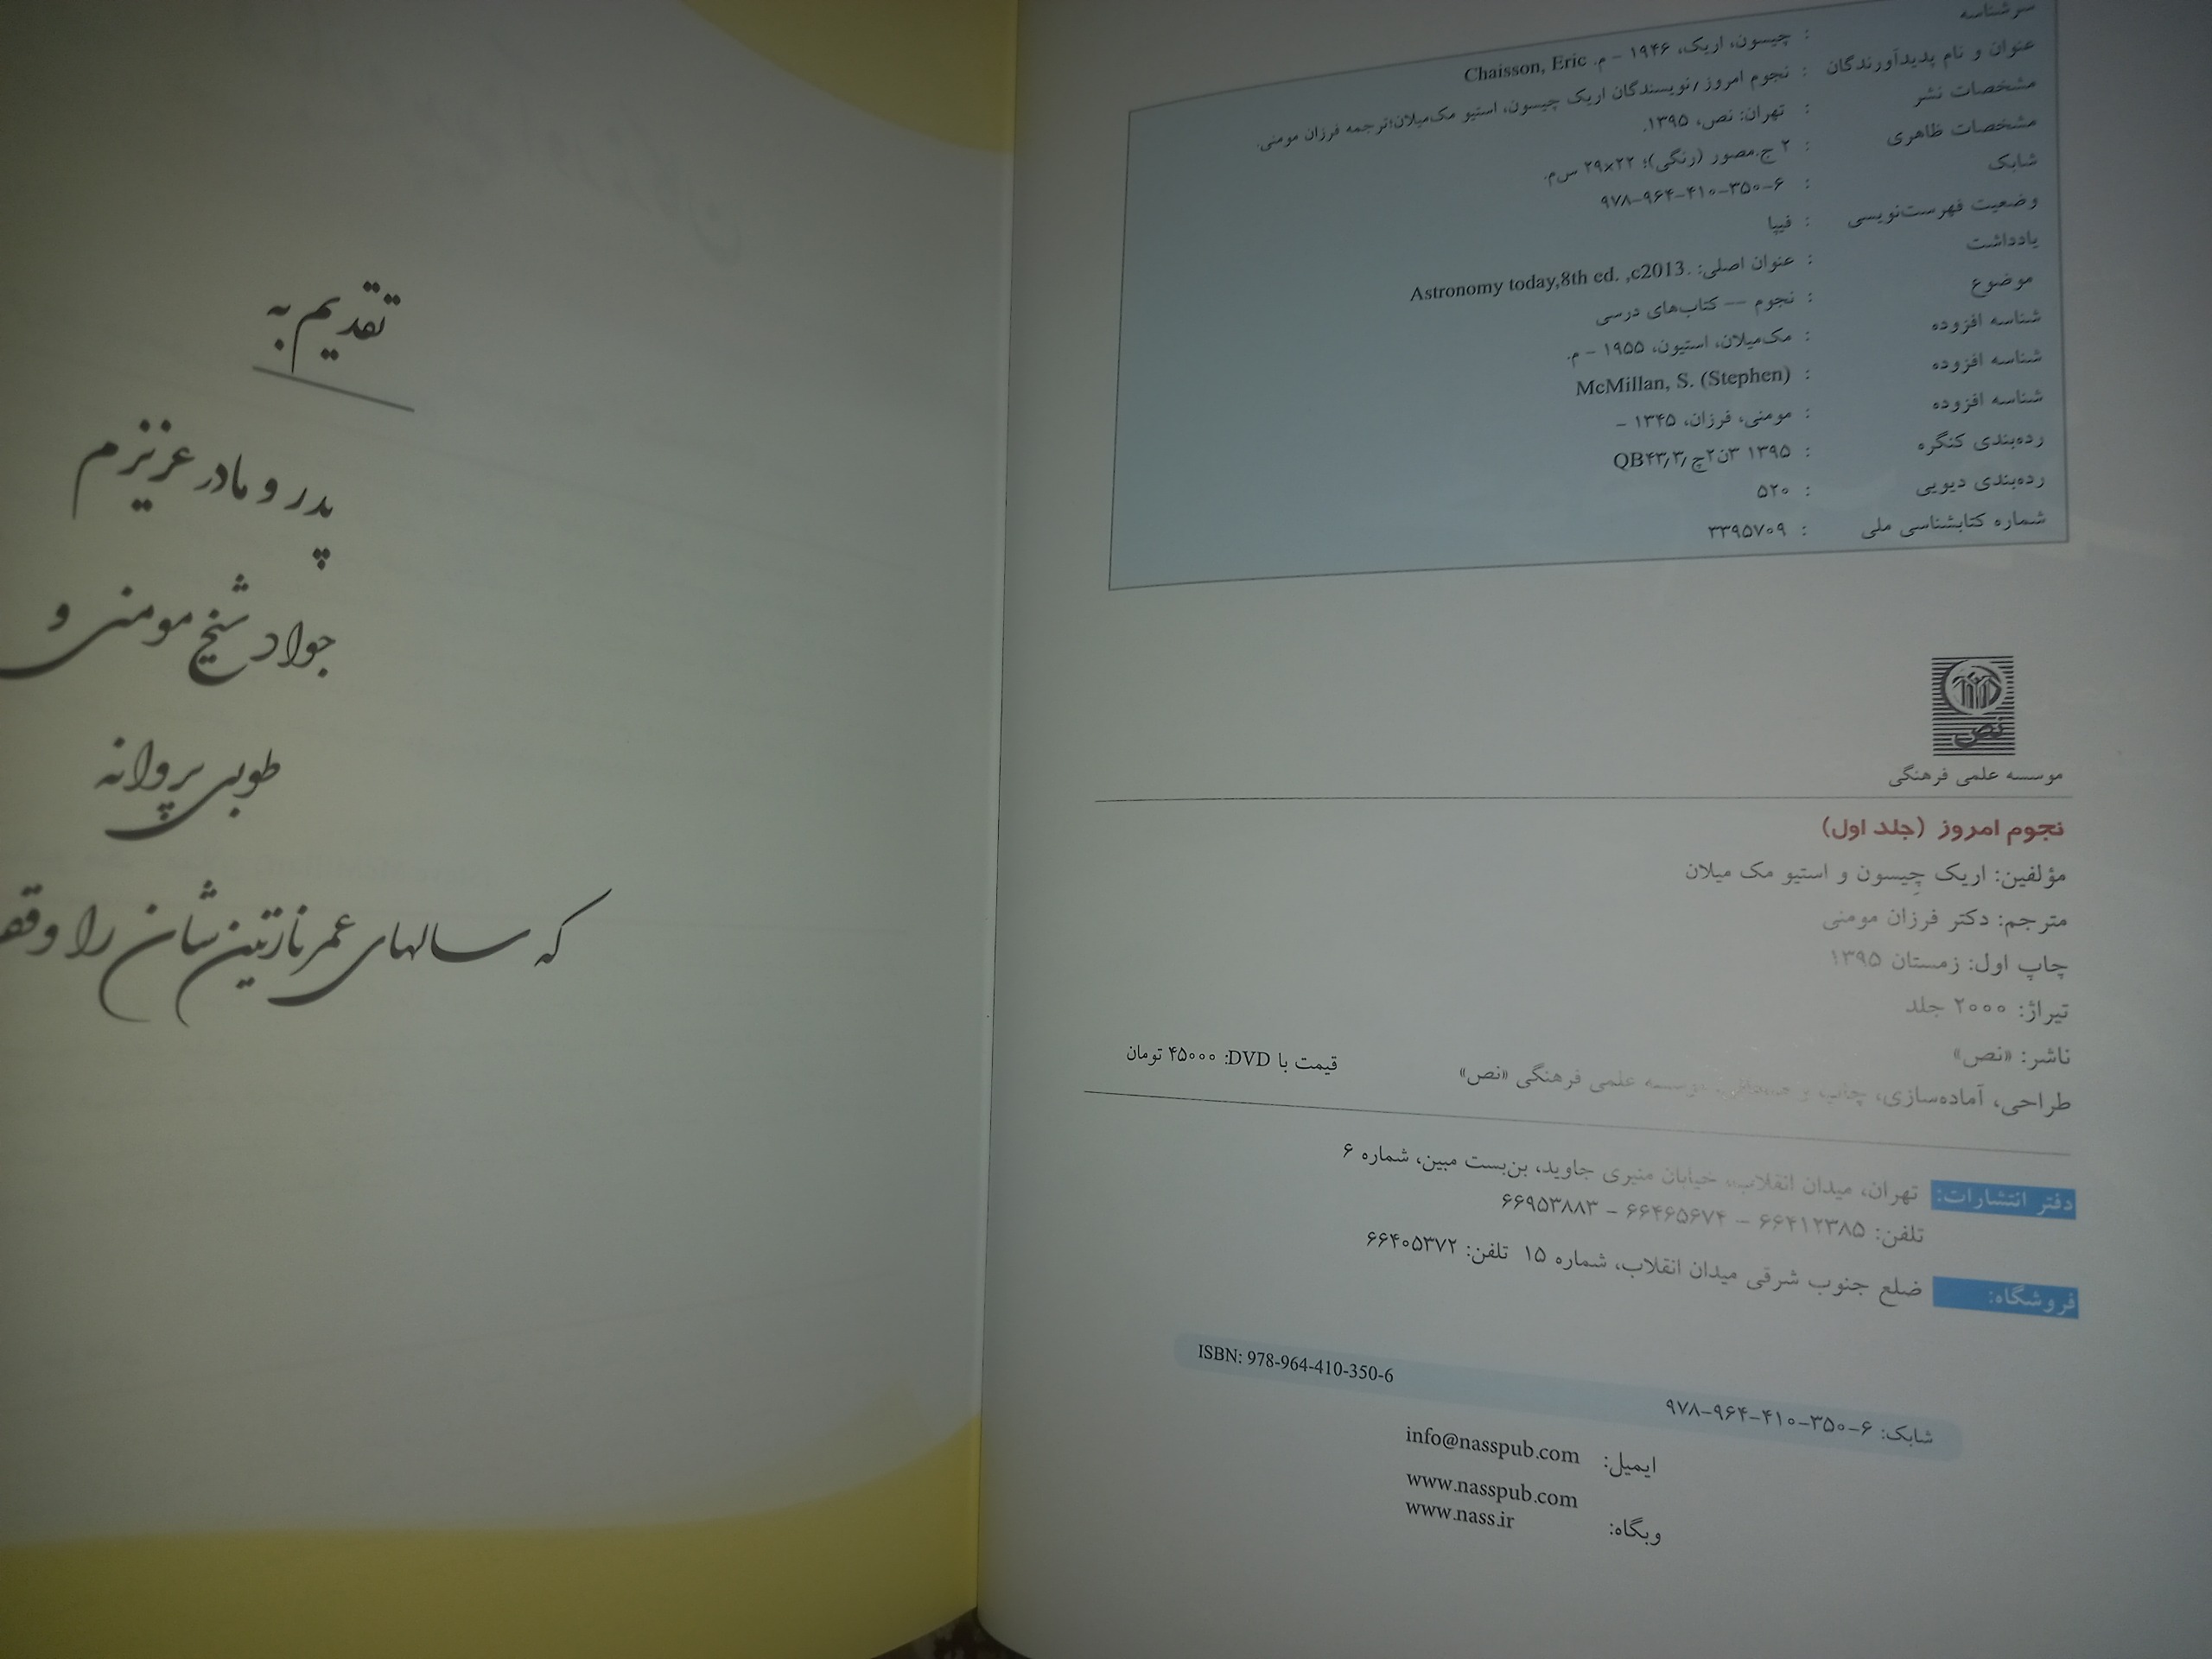 سرشناسه : چیسون، اریک، ۱۹۴۶ – م. Chaisson, Eric
عنوان و نام پدیدآورندگان : نجوم امروز /نویسندگان اریک چیسون، استیو مک‌میلان؛ترجمه فرزان مومنی.
مشخصات نشر : تهران: نص، ۱۳۹۵.
مشخصات ظاهری : ۲ ج.مصور (رنگی)؛ ۲۲×۲۹ س‌م.
شابک : ۹۷۸–۹۶۴–۴۱۰–۳۵۰–۶
وضعیت فهرست‌نویسی : فیپا
یادداشت : عنوان اصلی: .Astronomy today,8th ed. ,c2013
موضوع : نجوم –– کتاب‌های درسی
شناسه افزوده : مک‌میلان، استیون، ۱۹۵۵ – م.
شناسه افزوده : McMillan, S. (Stephen)
شناسه افزوده : مومنی، فرزان، ۱۳۴۵ –
رده‌بندی کنگره : ۱۳۹۵ ۳ن۲چ/QB۴۳/۳
رده‌بندی دیویی : ۵۲۰
شماره کتابشناسی ملی : ۳۳۹۵۷۰۹
نص
موسسه علمی فرهنگی
نجوم امروز (جلد اول)
مؤلفین: اریک چِیسون و استیو مک میلان
مترجم: دکتر فرزان مومنی
چاپ اول: زمستان ۱۳۹۵
تیراژ: ۲۰۰۰ جلد
ناشر: «نص»
طراحی، آماده‌سازی، چاپ و موسسه علمی فرهنگی «نص»
قیمت با DVD: ۴۵۰۰۰ تومان
دفتر انتشارات: تهران، میدان انقلاب، خیابان منیری جاوید، بن‌بست مبین، شماره ۶
تلفن: ۶۶۴۱۲۳۸۵ – ۶۶۴۶۵۶۷۴ – ۶۶۹۵۳۸۸۳
فروشگاه: ضلع جنوب شرقی میدان انقلاب، شماره ۱۵ تلفن: ۶۶۴۰۵۳۷۲
شابک: ۹۷۸–۹۶۴–۴۱۰–۳۵۰–۶ ISBN: 978-964-410-350-6
ایمیل: info@nasspub.com
وبگاه: www.nasspub.com
www.nass.ir
تقدیم به
پدر و مادر عزیزم
جواد شیخ مومنی و
طوبی پروانه
که سالهای عمر نازنین‌شان را